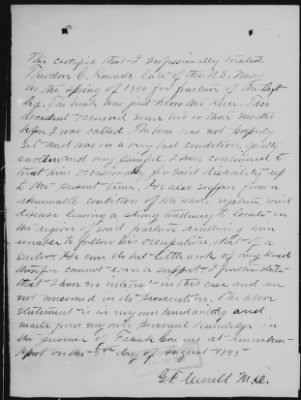 This certifies that I professionally treated
Theodore C. Rounds late of the U.S. Navy
in the spring of 1890 for fracture of the left
leg. The break was just below the knee. This
accident occurred some two or three months
before I was called. The bone was not properly
set and was in a very bad condition, greatly
swollen and very painful. I have continued to
treat him occasionally for said disability up
to the present time. He also suffers from a
rheumatic condition of the whole system, said
disease having a strong tendency to locate in
the region of said fracture rendering him
unable to follow his occupation, that of a
sailor. He can do but little work of any kind
therefor cannot earn a support. I further state
that I have no interest in this case and am
not concerned in its prosecution. The above
statement is in my own handwriting and
made from my own personal knowledge in
the presence of Frank
port on the day of August 1895
G.F. Merrill M.D.